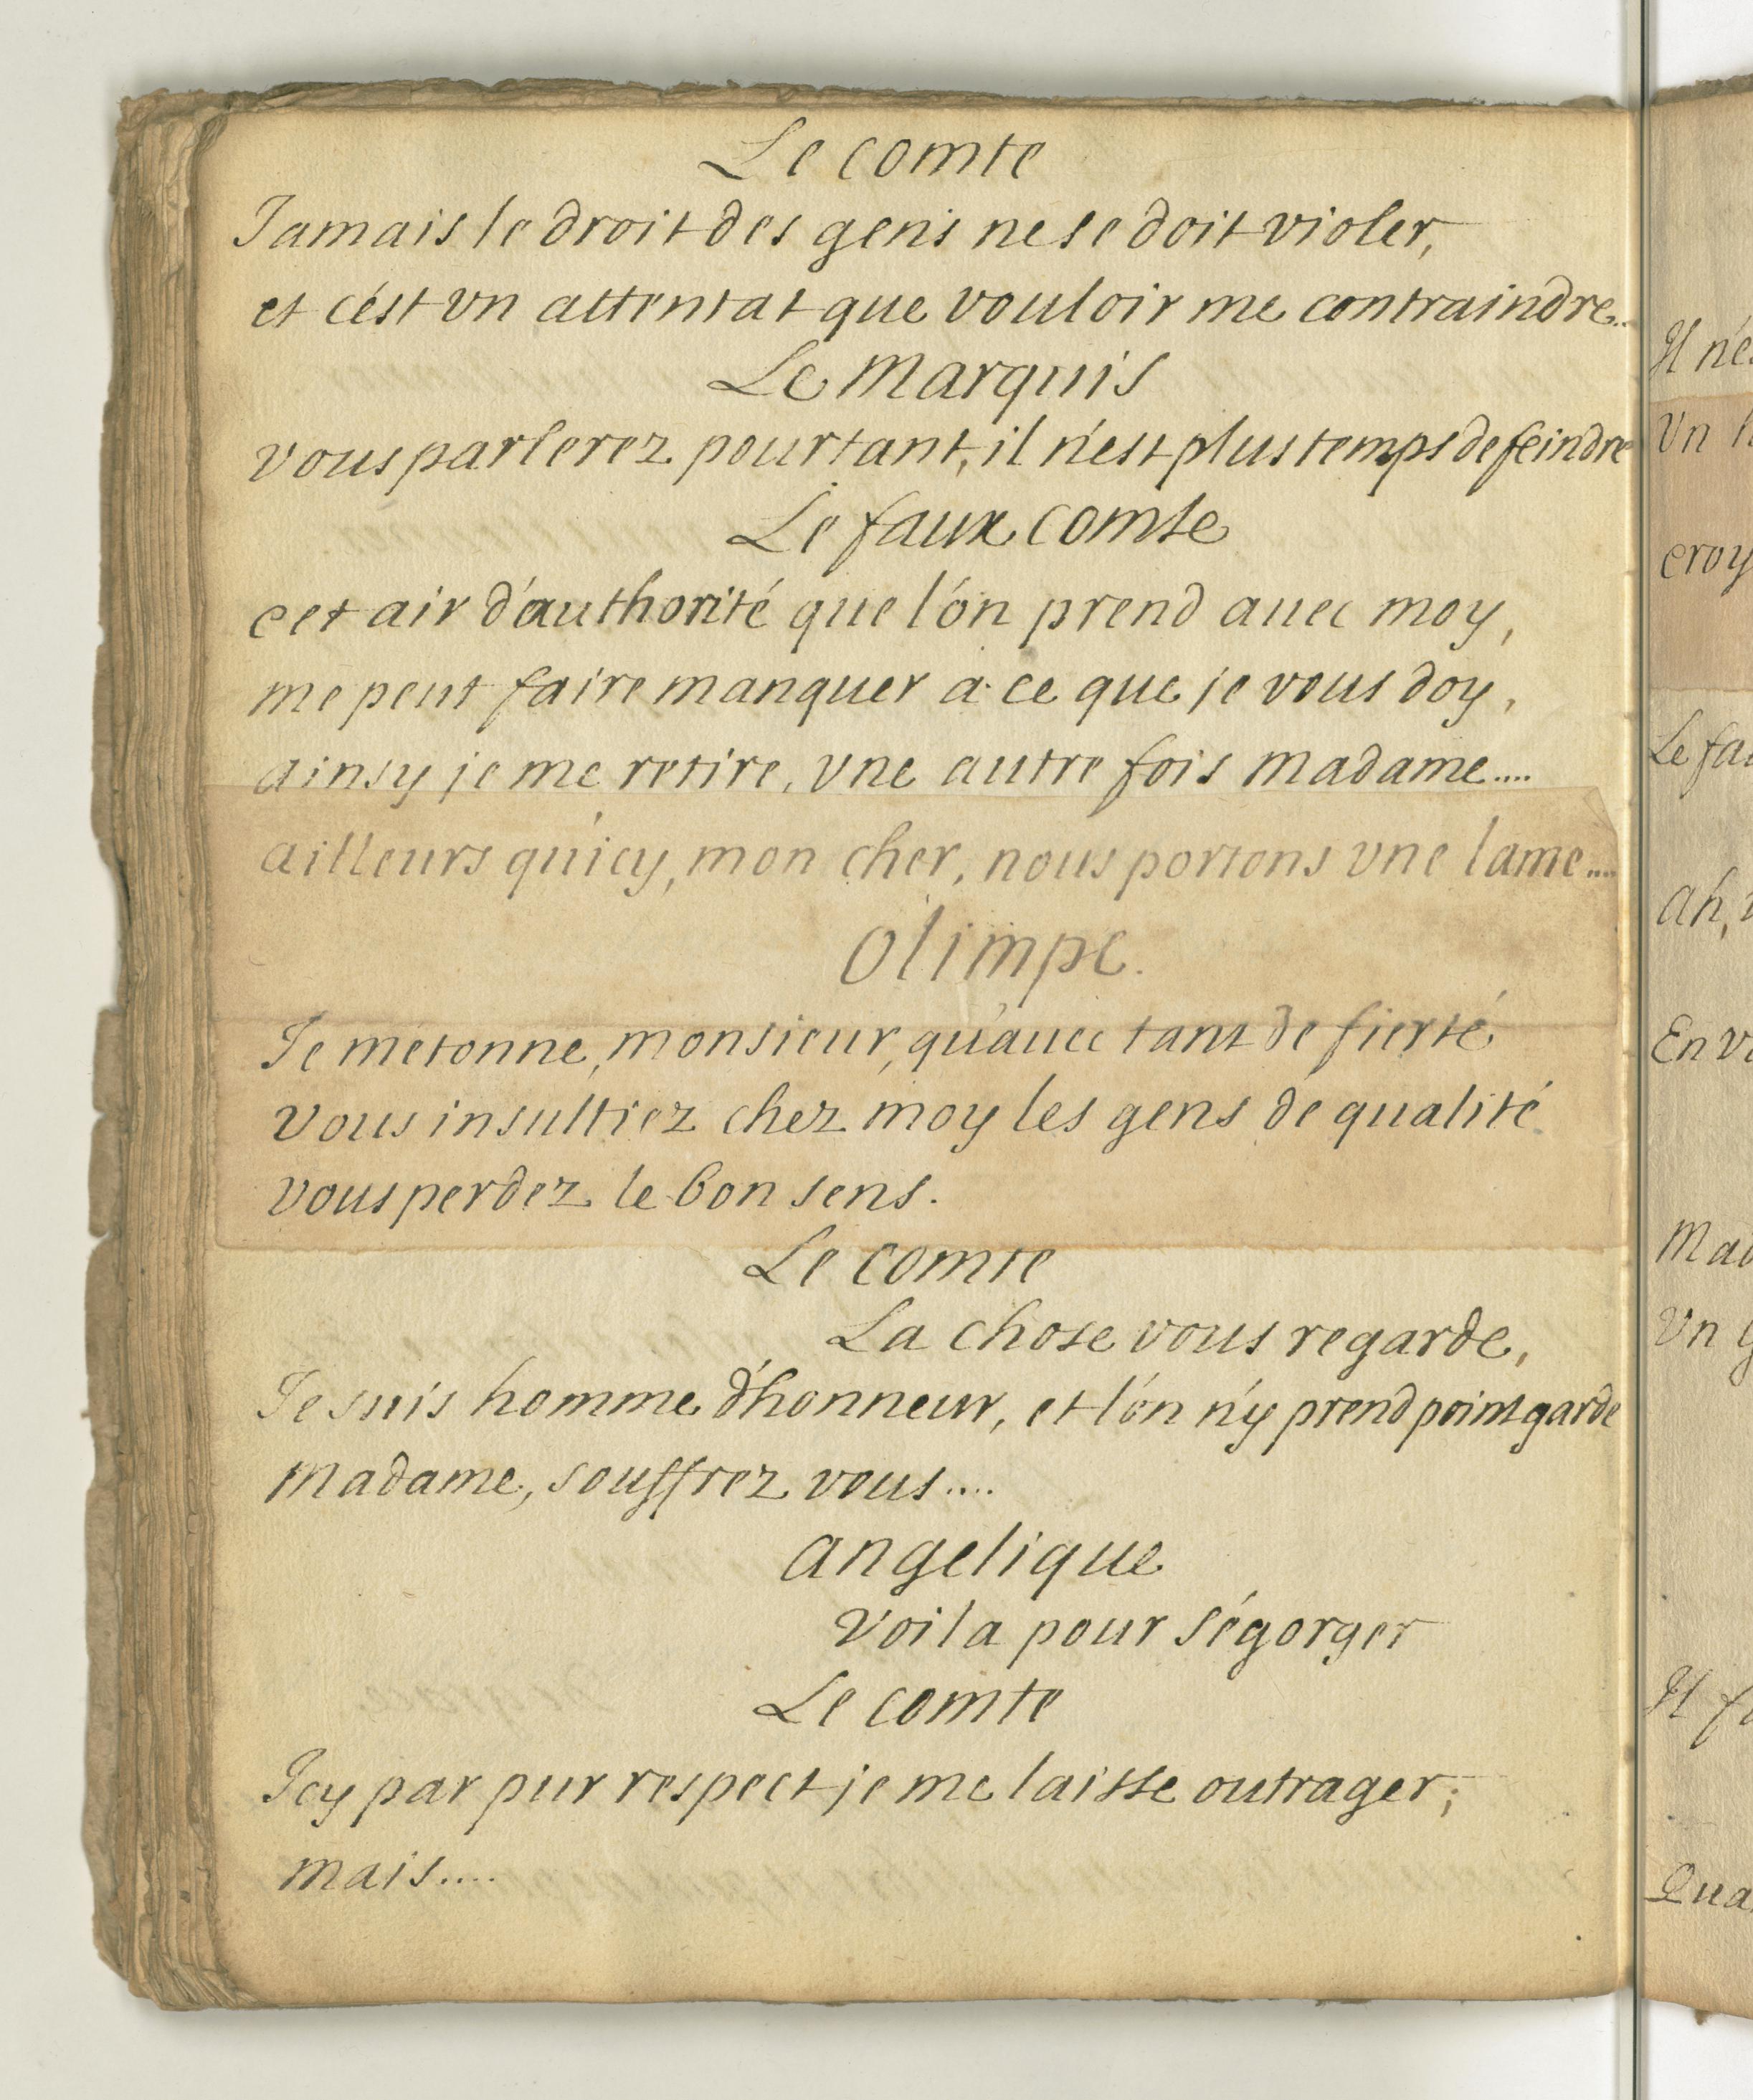 Le comte
Jamais le droit des gens ne se doit violer,
et c'est vn attentat que vouloir me contraindre..
Le Marquis
vous parlerez pourtant, il n'est plus temps de feindre
Le faux comte
cet air d'authorité que l'on prend auec moy,
me peut faire manquer a ce que je vous doy,
ainsy je me retire, vne autre fois Madame....
ailleurs qu'icy, mon cher, nous portons vne lame....
Olimpe.
Je m'etonne, monsieur, qu'auec tant de fierté
vous insultiez chez moy les gens de qualité.
vous perdez le bon sens.
Le comte
La chose vous regarde,
Je suis homme d'honneur, et l'on n'y prend point garde
Madame, souffrez vous....
angelique
Voila pour s'égorger
Le comte
Icy par pur respect je me laisse outrager;
mais....
Il n'e
Vn
croy
Le fa
ah,
En v
Mad
Vn g
Il f
Qua